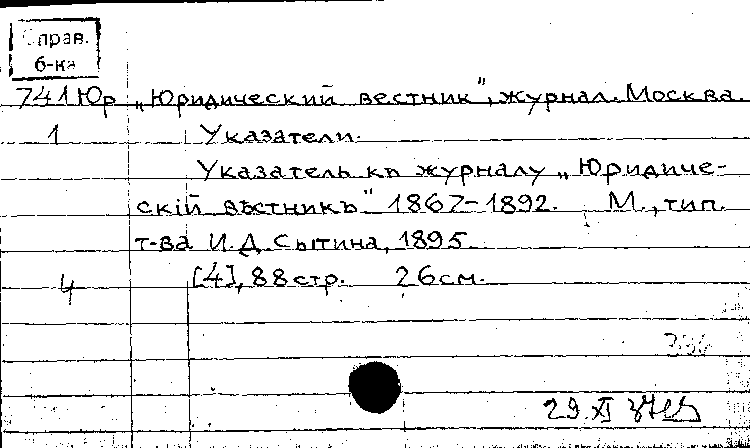 Справ.
б-ка
741Юр „Юридический вестник", журнал. Москва.
1 Указатели.
Указатель къ журналу „Юридиче-
скій вѣстникъ" 1867-1892. М., тип.
т-ва И.Д. Сытина, 1895.
4 [4], 88 стр. 26 см.
336
29.XI